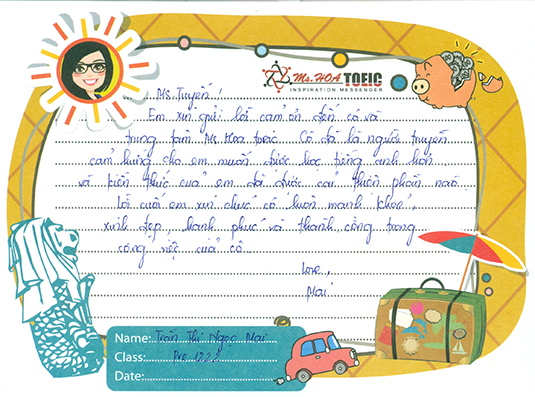 Ms. HOA TOEIC
INSPIRATION MESSENGER
Ms. Tuyền !
Em xin gửi lời cảm ơn đến cô và
trung tâm Ms Hoa toeic. Cô đã là người truyền
cảm hứng cho em muốn được học tiếng anh hơn
và kiến thức của em đã được cải thiện phần nào.
Lời cuối em xin chúc cô luôn mạnh khỏe,
xinh đẹp, hạnh phúc và thành công trong
công việc của cô.
Love,
Mai
Name: Trần Thị Ngọc Mai
Class: Pre 1222
Date: